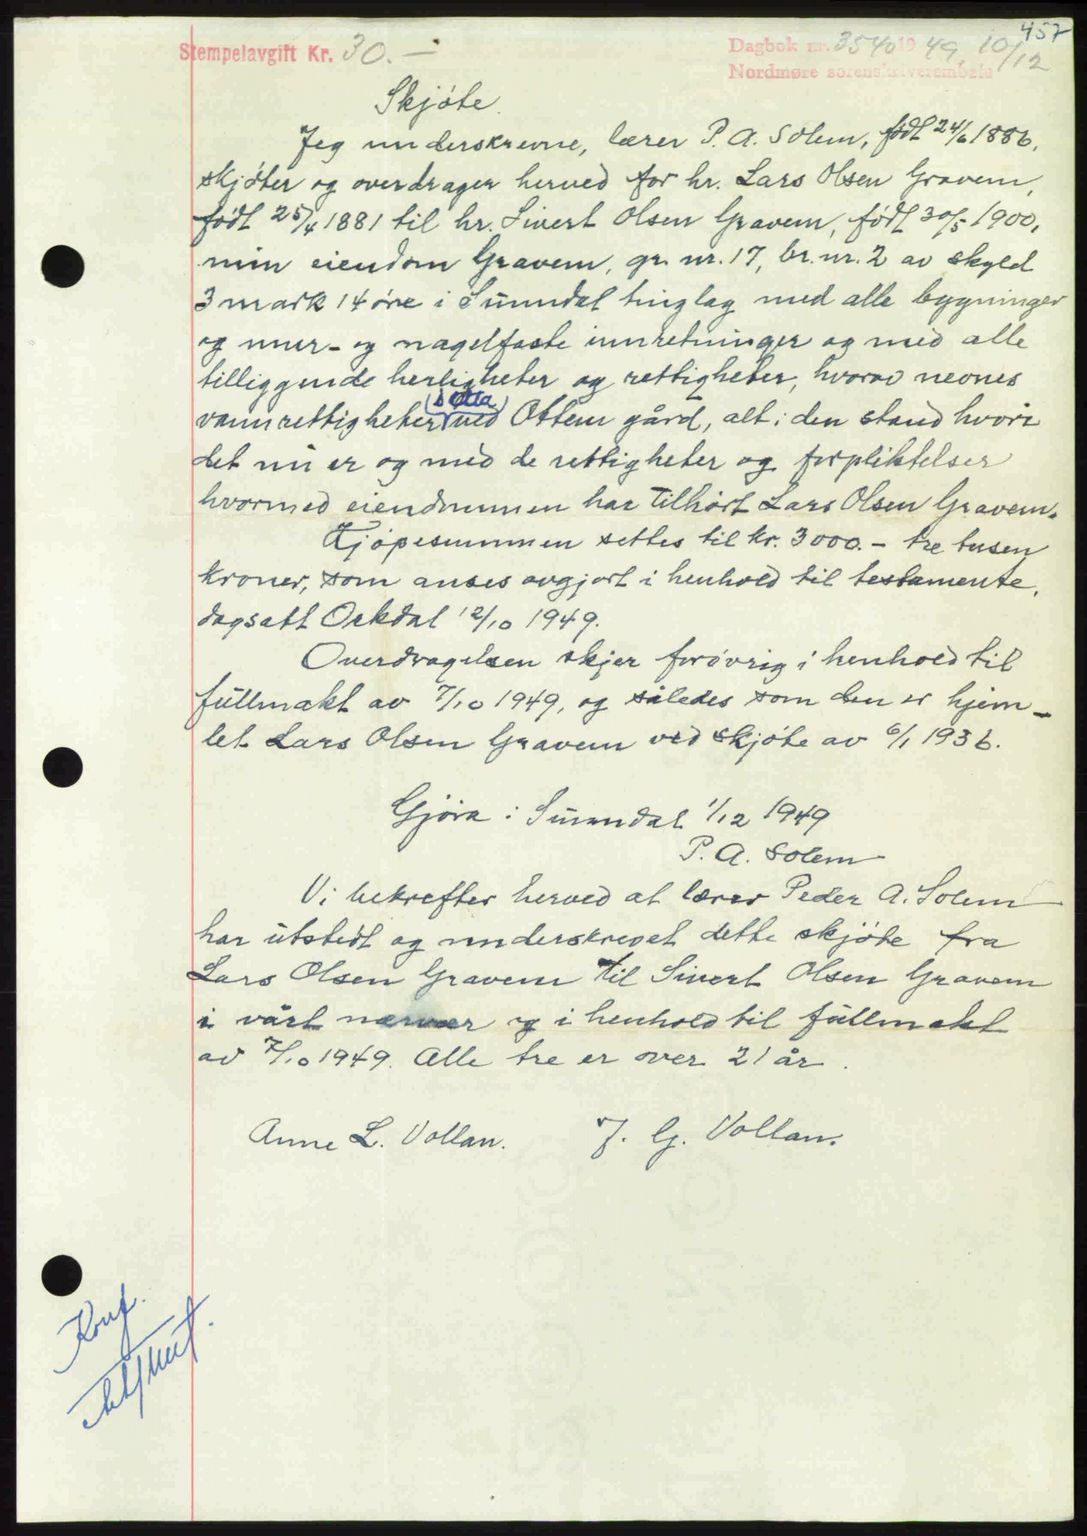 457
Stempelavgift Kr. 30.—
Dagbok nr. 3540 19 49, 10/12
Nordmøre sorenskriverembede
Skjöte.
Jeg underskrevne, lærer P. A. Solem, född 24/6 1886,
skjöter og overdrager herved for hr. Lars Olsen Gravem,
född 25/4 1881 til hr. Sivert Olsen Gravem, född 30/5 1900,
min eiendom Gravem, gr. nr. 17, br. nr. 2 av skyld
3 mark 14 öre i Sunndal tinglag med alle bygninger
og mur- og nagelfaste innretninger og med alle
tilliggende herligheter og rettigheter, hvorav nevnes
vannrettigheter ved Ottem gård, alt i den stand hvori
det nu er og med de rettigheter og forpliktelser
hvormed eiendommen har tilhört Lars Olsen Gravem.
Kjöpesummen settes til kr. 3000.- tre tusen
kroner, som anses avgjort i henhold til testamente,
dagsatt Orkdal 12/10 1949.
Overdragelsen skjer forövrig i henhold til
fullmakt av 7/10 1949, og således som den er hjem-
let Lars Olsen Gravem ved skjöte av 6/1 1936.
Gjöra i Sunndal 1/12 1949
P. A. Solem
Vi bekrefter herved at lærer Peder A. Solem
har utstedt og underskrevet dette skjöte fra
Lars Olsen Gravem til Sivert Olsen Gravem
i vårt nærvær og i henhold til fullmakt
av 7/10 1949. Alle tre er over 21 år.
Anne L. Vollan. J. G. Vollan.
Konf.